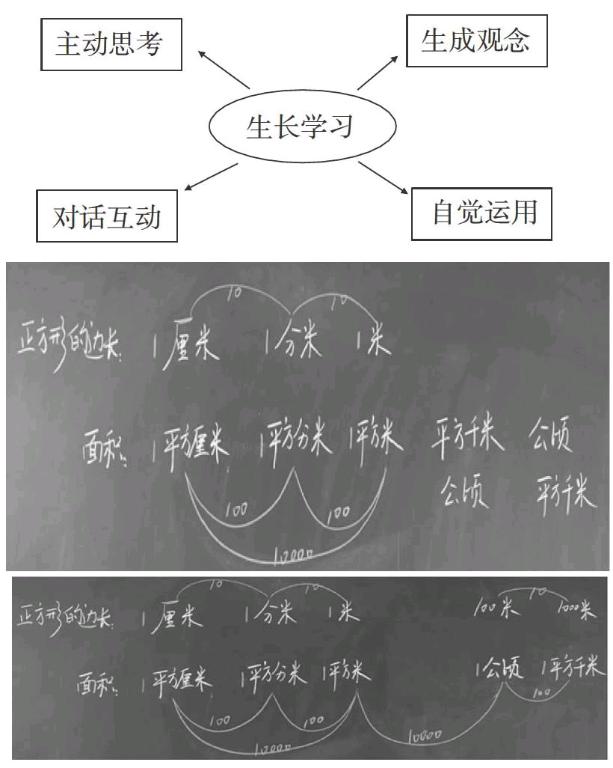 主动思考 生成观念
生长学习
对话互动 自觉运用
10 10
正方形的边长: 1厘米 1分米 1米
面积: 1平方厘米 1平方分米 1平方米 平方千米 公顷
公顷 平方千米
100 100
10000
10 10 10
正方形的边长: 1厘米 1分米 1米 100米 1000米
面积: 1平方厘米 1平方分米 1平方米 1公顷 1平方千米
100 100 100
10000 10000